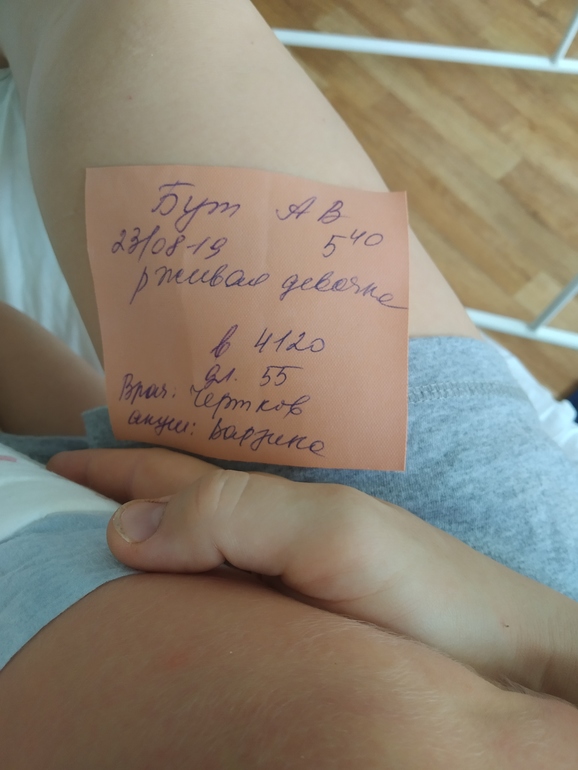 Бут А В
23/08-19 5 40
р живая девочка
в 4120
дл. 55
Врач: Чертков
акуш: